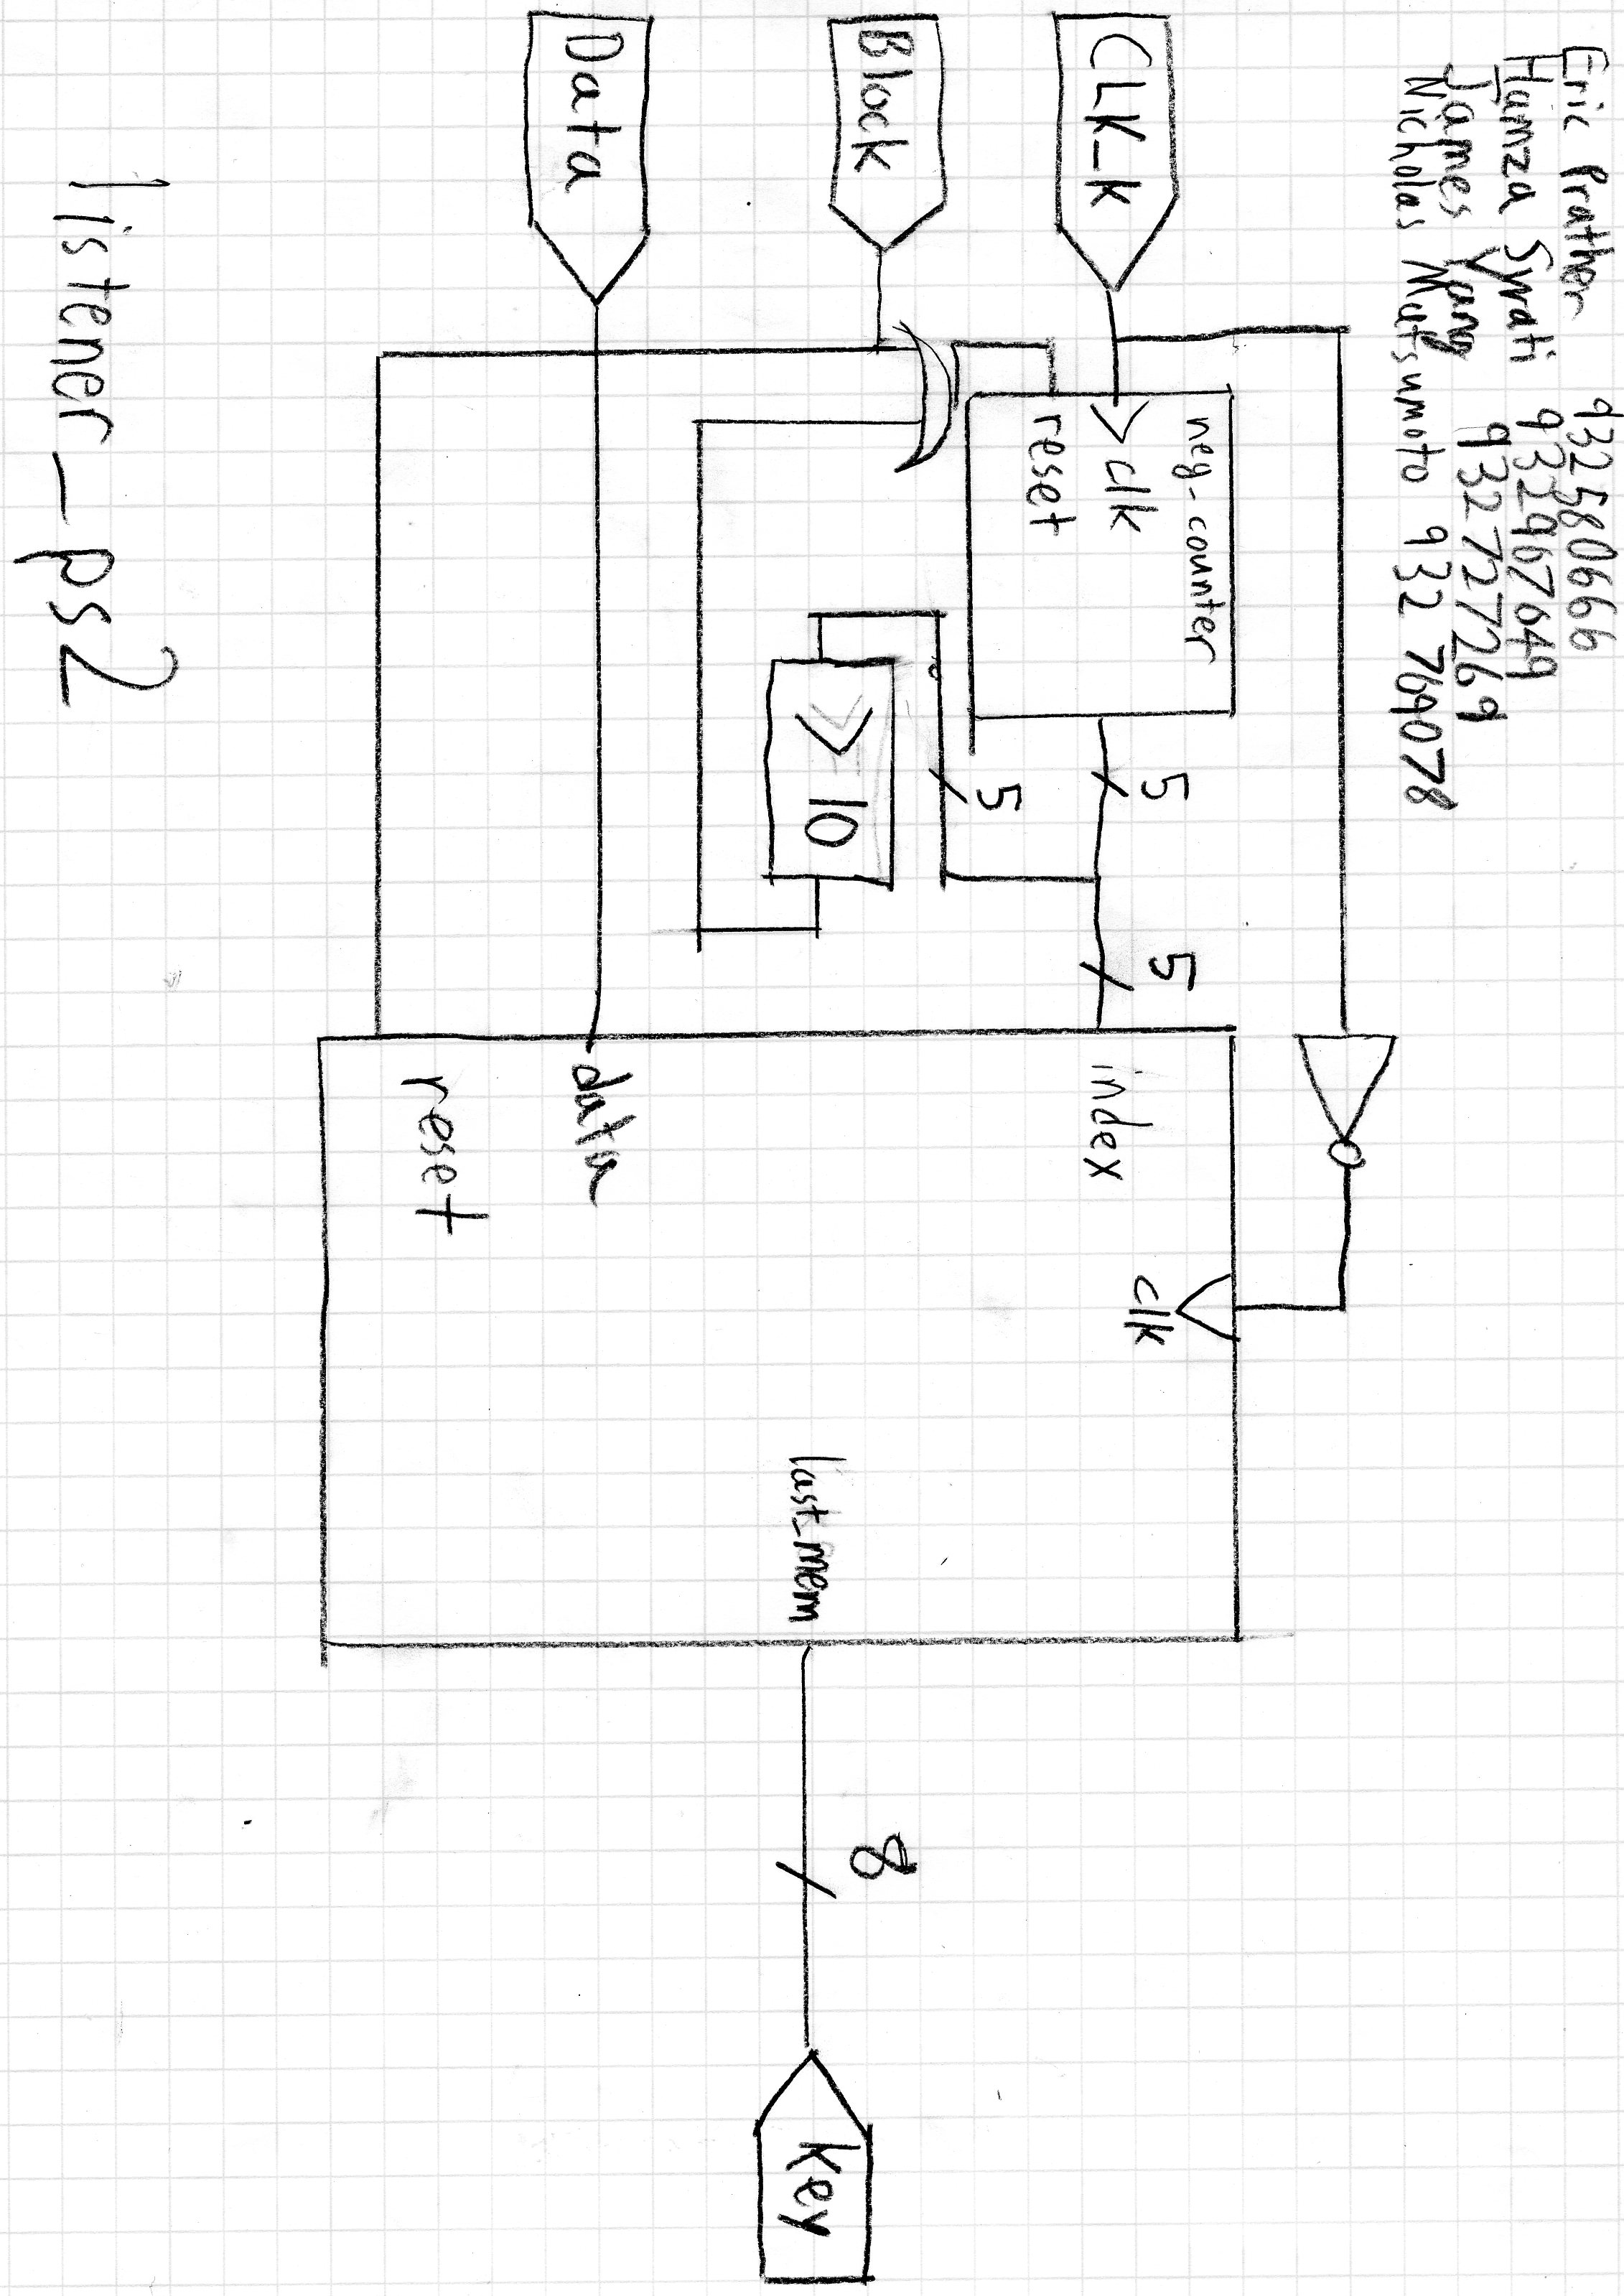 Eric Prather 932580666
Hamza Syrati 932967049
James Yang 932727269
Nicholas Matsumoto 932 769078
neg_counter
CLK_K
> clk
reset
5
5
index
clk
5
Block
> 10
8
last_mem
Key
Data
data
reset
listener_ps2